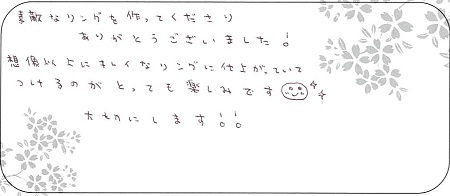 素敵なリングを作ってくださり
ありがとうございました!
想像以上にキレイなリングに仕上がっていて
つけるのがとっても楽しみです
大切にします!!